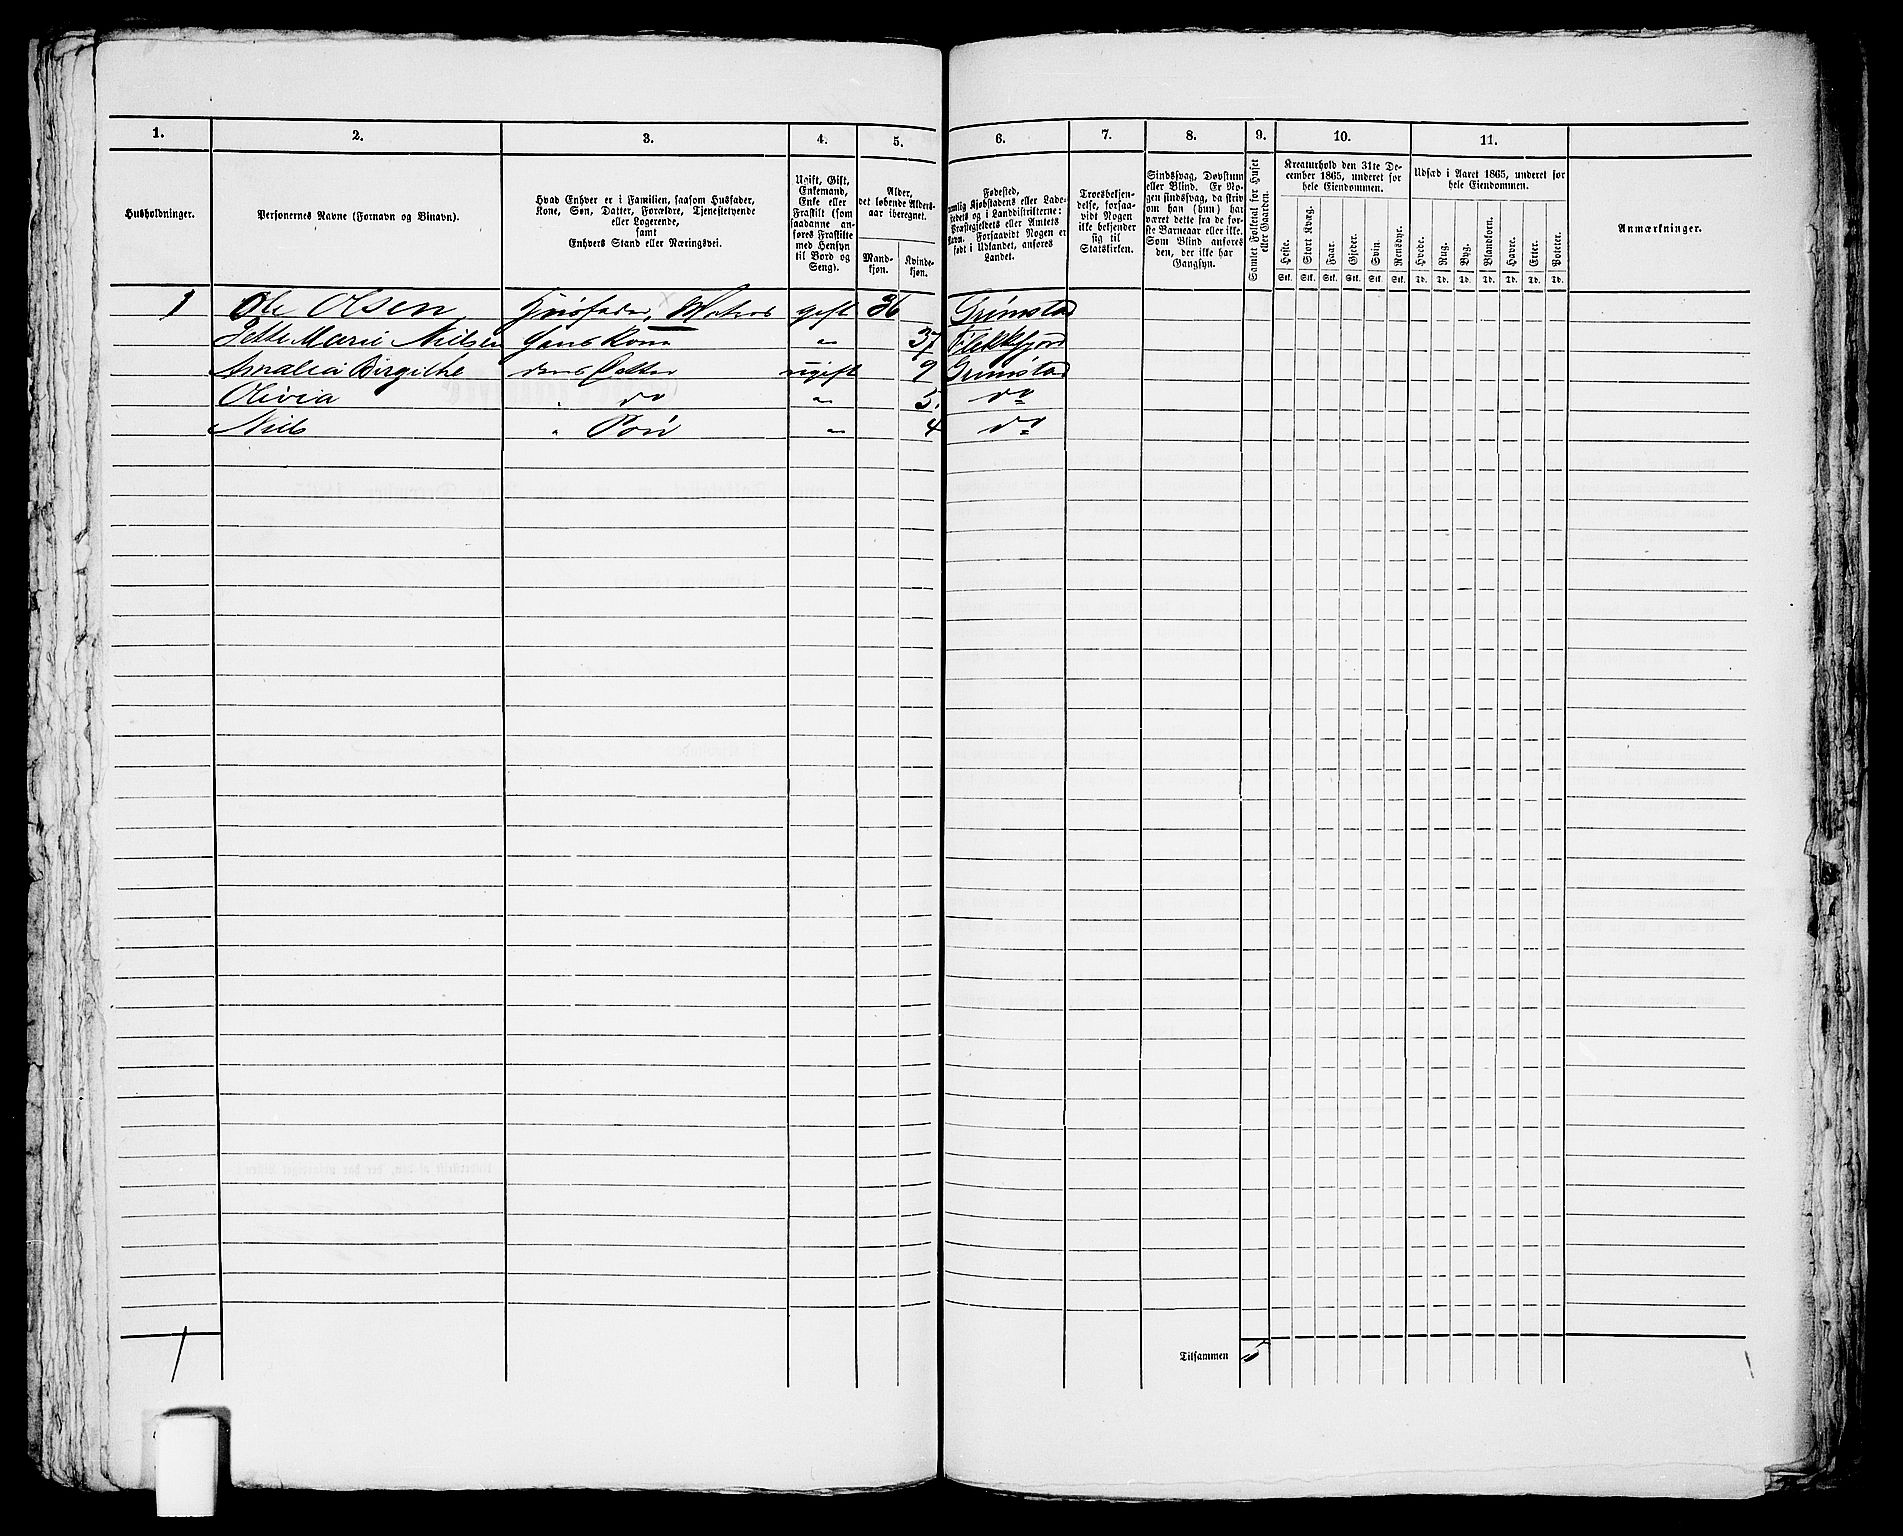 1. 2. 3. 4. 5. 6. 7. 8. 9. 10. 11.
Husholdninger.
Personernes Navne (Fornavn og Binavn).
Hvad Enhver er i Familien, saasom Husfader,
Kone, Søn, Datter, Forældre, Tjenestetyende
eller Logerende,
samt
Enhvers Stand eller Næringsvei.
Ugift, Gift,
Enkemand,
Enke eller
Fraskilt (som
saadanne an-
føres Fraskilte
med Hensyn
til Bord og
Seng).
Alder,
det løbende Alders-
aar iberegnet.
Mand-
kjøn.
Kvinde-
kjøn.
Fødested,
nemlig Kjøbstadens eller Lade-
stedets og i Landdistrikterne:
Præstegjeldets eller Amtets
Navn. Forsaavidt Nogen er
født i Udlandet, anføres
Landet.
Troesbekjen-
delse, forsaa-
vidt Nogen
ikke bekjender
sig til
Statskirken.
Sindssvag, Døvstum
eller Blind. Er No-
gen sindssvag, da skriv
om han (hun) har
været dette fra de før-
ste Barneaar eller ikke.
Som Blind anføres
den, der ikke har
Gangsyn.
Samlet Folketal for Huset
eller Gaarden.
Kreaturhold den 31te De-
cember 1865, underet for
hele Eiendommen.
Heste. Stort Kvæg. Faar. Gjeder. Svin. Rensdyr.
Stk. Stk. Stk. Stk. Stk. Stk.
Udsæd i Aaret 1865, underet for
hele Eiendommen.
Hvede. Rug. Byg. Blandkorn. Havre. Erter. Poteter.
Td. Td. Td. Td. Td. Td. Td.
Anmærkninger.
1 Ole Olsen Huusfader, Matros gift 36 Grimstad
Jette Marie Nielsen Hans Kone " 37 Flekkefjord
Amalia Birgithe deres Datter ugift 9 Grimstad
Olivia " do " 5 do
Niels " Søn " 4 do
1
Tilsammen 5